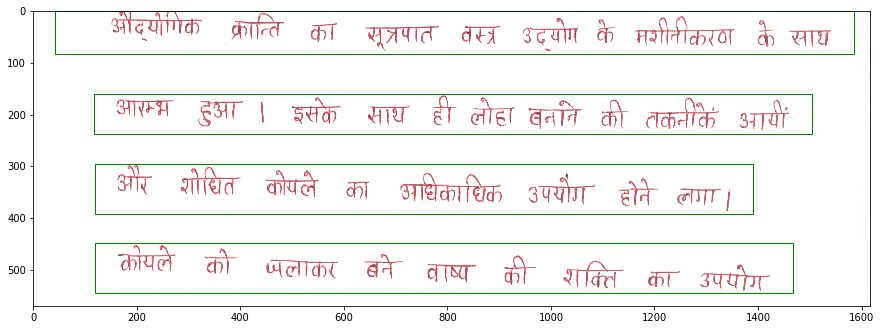 औद्योगिक क्रान्ति का सूत्रपात वस्त्र उद्योग के मशीनीकरण के साथ
आरम्भ हुआ । इसके साथ ही लोहा बनाने की तकनीकें आयीं
और शोधित कोयले का अधिकाधिक उपयोग होने लगा ।
कोयले को जलाकर बने वाष्प की शक्ति का उपयोग
0
100
200
300
400
500
0 200 400 600 800 1000 1200 1400 1600